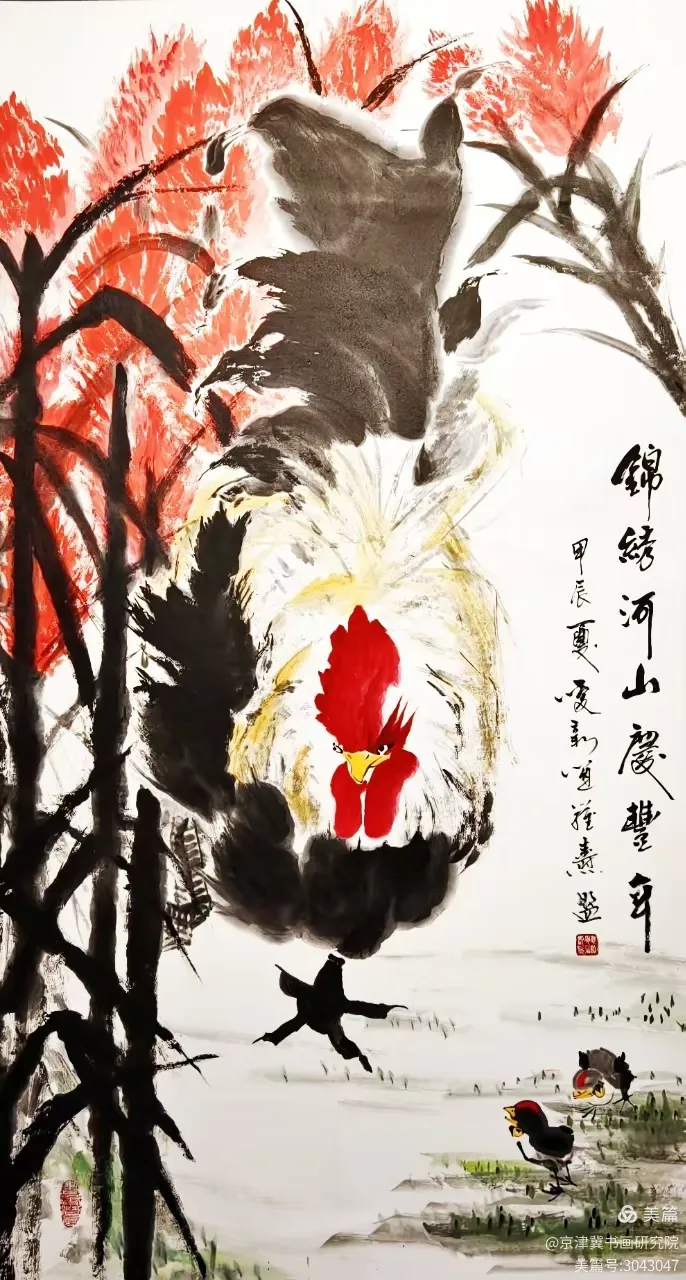 錦綉河山慶豐年
甲辰夏
美篇
@京津冀书画研究院
美篇号:3043047